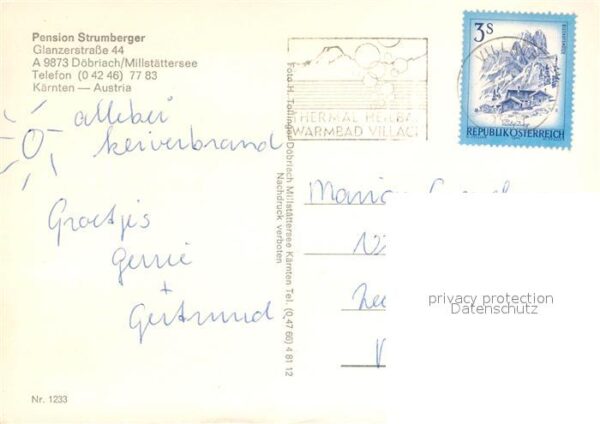 Pension Strumberger
Glanzerstraße 44
A 9873 Döbriach/Millstättersee
Telefon (0 42 46) 77 83
Kärnten — Austria
allebei
Groetjes
Gerrie
+
Gertruud.
Nr. 1233
Foto H. Tollinger Döbriach Millstättersee Kärnten Tel. (0 47 66) 4 81 12
Nachdruck verboten
THERMAL HEILBA
WARMBAD VILLAC
VILLA
3S
REPUBLIK ÖSTERREICH
privacy protection
Datenschutz